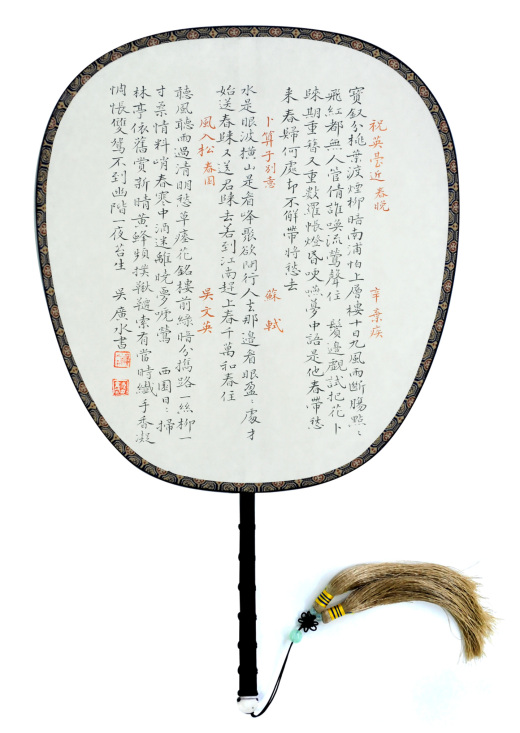 祝英臺近 春晚 辛棄疾
寶釵分桃葉渡煙柳暗南浦怕上層樓十日九風雨斷腸點〻
飛紅都無人管倩誰喚流鶯聲住 鬢邊覷試把花卜
歸期重簪又重數羅帳燈昏哽咽夢中語是他春帶愁
來春歸何處却不解帶將愁去
卜算子 別意 蘇軾
水是眼波橫山是眉峰聚欲問行人去那邊眉眼盈〻處才
始送春歸又送君歸去若到江南趕上春千萬和春住
風入松 春園 吳文英
聽風聽雨過清明愁草瘞花銘樓前綠暗分攜路一絲柳一
寸柔情料峭春寒中酒迷離曉夢啼鶯 西園日〻掃
林亭依舊賞新晴黃蜂頻撲鞦韆索有當時纖手香凝
惆悵雙鴛不到幽階一夜苔生 吳廣水書